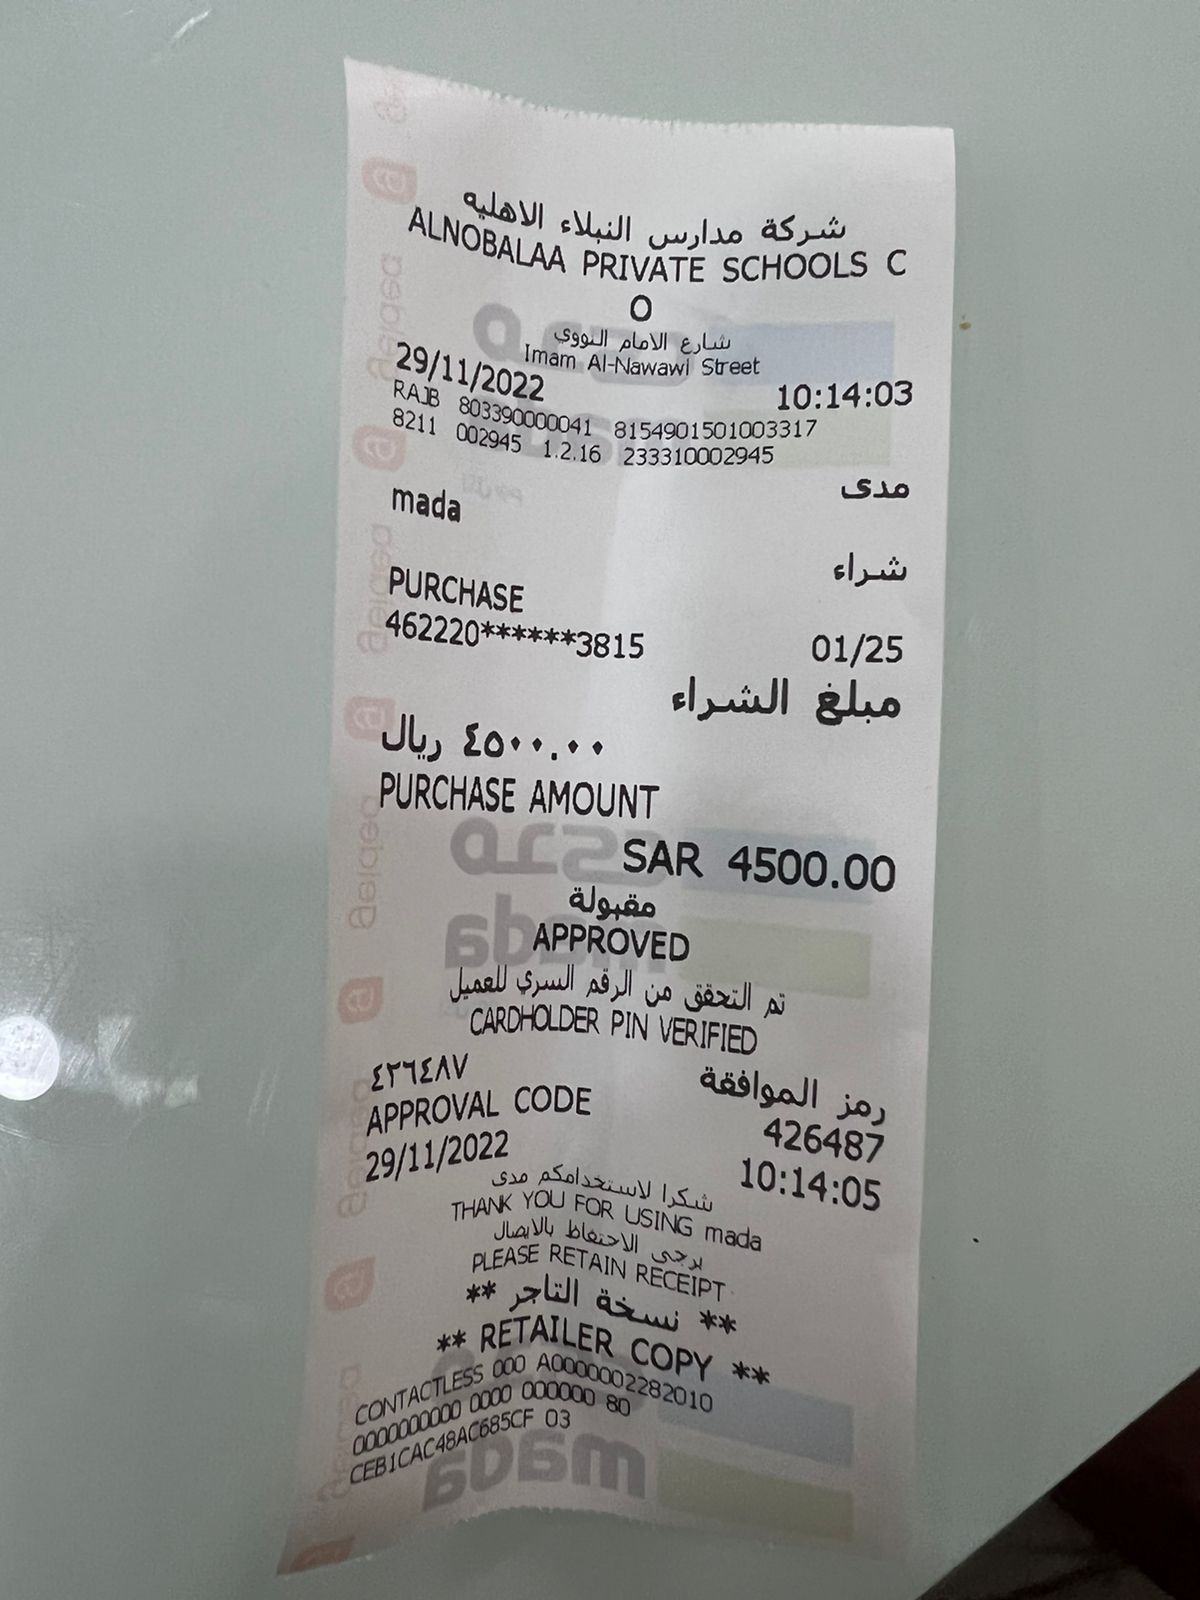 شركة مدارس النبلاء الاهليه
ALNOBALAA PRIVATE SCHOOLS C
O
شارع الامام النووي
Imam Al-Nawawi Street
29/11/2022 10:14:03
RAJB 803390000041 8154901501003317
8211 002945 1.2.16 233310002945
مدى
mada
شراء
PURCHASE
462220******3815 01/25
مبلغ الشراء
٤٥٠٠.٠٠ ريال
PURCHASE AMOUNT
SAR 4500.00
مقبولة
APPROVED
تم التحقق من الرقم السري للعميل
CARDHOLDER PIN VERIFIED
رمز الموافقة ٤٢٦٤٨٧
APPROVAL CODE 426487
29/11/2022 10:14:05
شكرا لاستخدامكم مدى
THANK YOU FOR USING mada
يرجى الاحتفاظ بالايصال
PLEASE RETAIN RECEIPT
** نسخة التاجر **
** RETAILER COPY **
CONTACTLESS 000 A0000002282010
0000000000 0000 000000 80
CEB1CAC48AC685CF 03